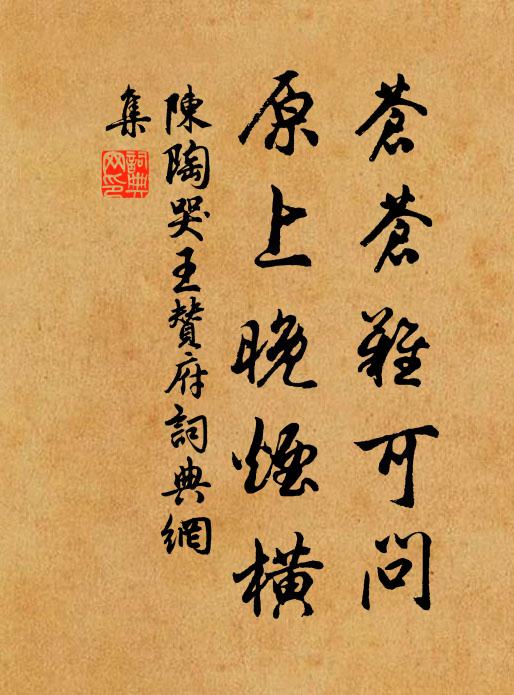 蒼蒼難可問
原上晚煙橫
陳陶哭王贊府詞典網
集
詞典網印